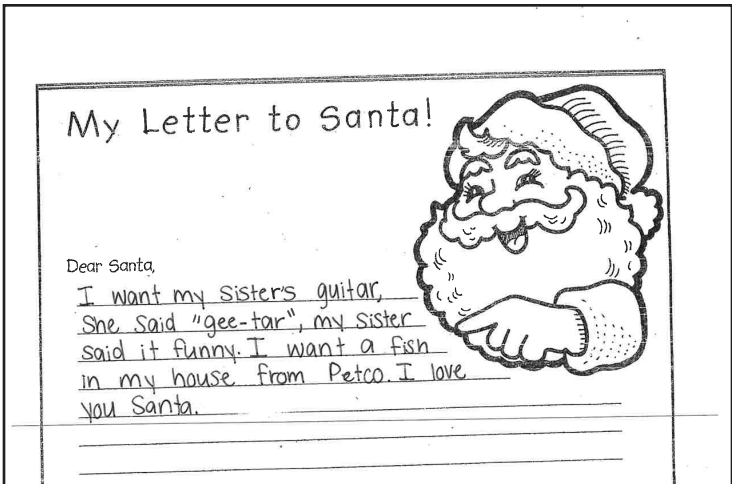 My Letter to Santa!
Dear Santa,
I want my sister's guitar,
She said "gee-tar", my sister
said it funny. I want a fish
in my house from Petco. I love
you Santa.